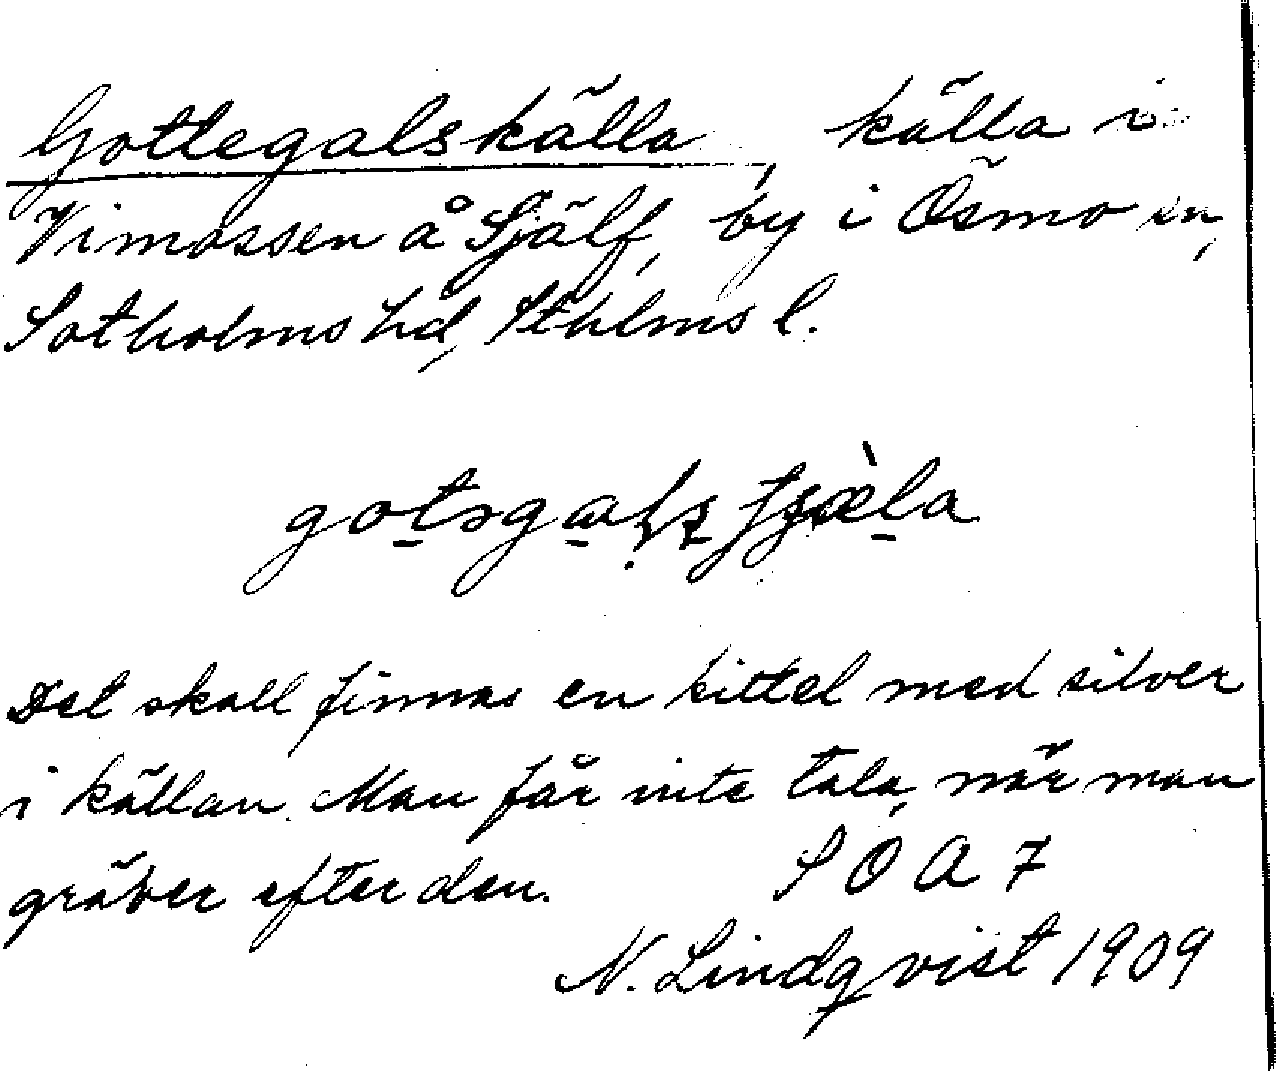 Gottegalskälla, källa i
Vimossen å Själf, by i Ösmo sn,
Sotholms hd, Sthlms l.
Det skall finnas en kittel med silver
i källan. Man får inte tala, när man
gräver efter den. S O A 7
N. Lindqvist 1909